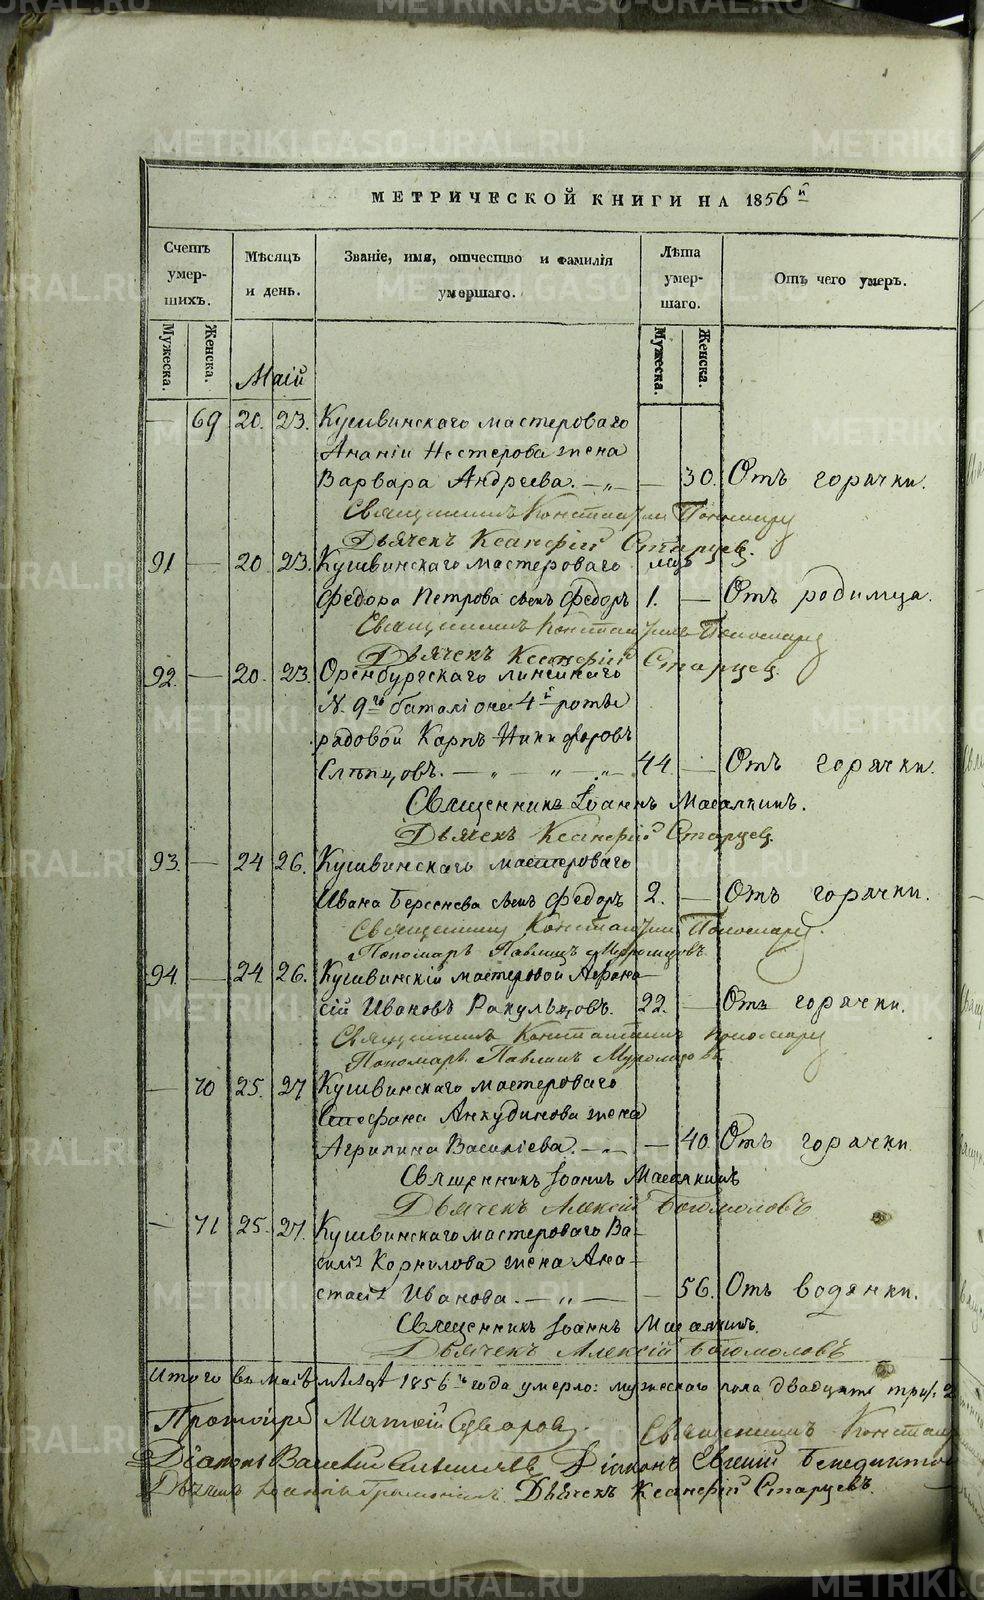 METRIKI.GASO-URAL.RU
МЕТРИЧЕСКОЙ КНИГИ НА 1856й
Счетъ умер- шихъ.
Мѣсяцъ и день.
Званіе, имя, отчество и фамилія умершаго.
Лѣта умер- шаго.
Отъ чего умеръ.
Мужеска.
Женска.
Маій
Мужеска.
Женска.
— 69 20. 23. Кушвинскаго мастероваго
Ананіи Нестерова жена
Варвара Андреева. — „ — — 30. Отъ горячки.
Священникъ Константинъ Пономаревъ
Дьячекъ Ксанфій Старцевъ.
91 — 20 23. Кушвинскаго мастероваго мѣс
Федора Петрова сынъ Федоръ 1. — Отъ родимца.
Священникъ Константинъ Пономаревъ
Дьячекъ Ксанфій Старцевъ.
92. — 20. 23. Оренбургскаго линейнаго
N. 9го баталіона 4й роты
рядовой Карпъ Никифоровъ
Слѣпцовъ. — „ — „ — „ — 44. — Отъ горячки.
Священникъ Іоаннъ Масалкинъ.
Дьячекъ Ксанфій Старцевъ.
93. — 24 26. Кушвинскаго мастероваго
Ивана Берсенева сынъ Федоръ 2. — Отъ горячки.
Священникъ Константинъ Пономаревъ.
Пономарь Павлинъ
94. — 24 26. Кушвинскій мастеровой Афана-
сій Ивановъ Ракульцовъ. 22. — Отъ горячки.
Священникъ Константинъ Пономаревъ
Пономарь Павлинъ
— 70 25. 27 Кушвинскаго мастероваго
Стефана Анкудинова жена
Агрипина Василіева. — „ — — 40. Отъ горячки.
Священникъ Іоаннъ Масалкинъ
Дьячекъ Алексій Богомоловъ
— 71 25. 27. Кушвинскаго мастероваго Ва-
силія Корнилова жена Ана-
стасія Иванова. — „ — — 56. Отъ водянки.
Священникъ Іоаннъ Масалкинъ.
Дьячекъ Алексій Богомоловъ
Итого въ маіѣ мѣсяцѣ 1856го года умерло: мужескаго пола двадцать три/
Протоіерей Матѳій Суворовъ. Священникъ
Діаконъ Діаконъ Евгеній
Дьячекъ Дьячекъ Ксанфій Старцевъ.